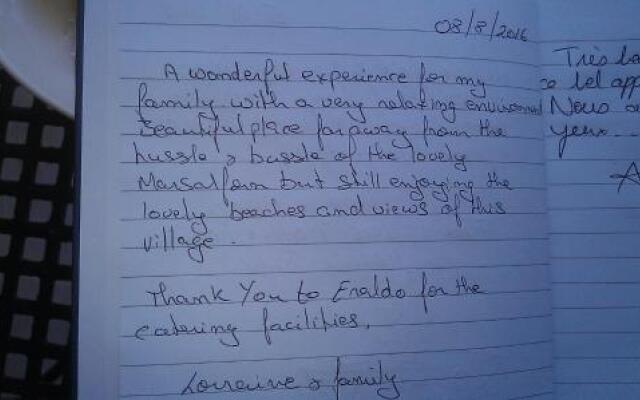 08/8/2016
A wonderful experience for my
family with a very relaxing environment
Beautiful place far away from the
hussle & bussle of the lovely
Marsalforn but still enjoying the
lovely beaches and views of this
village.
Thank You to Enaldo for the
catering facilities.
Lorraine & family
Très
tel app
Nous
yeux...
A